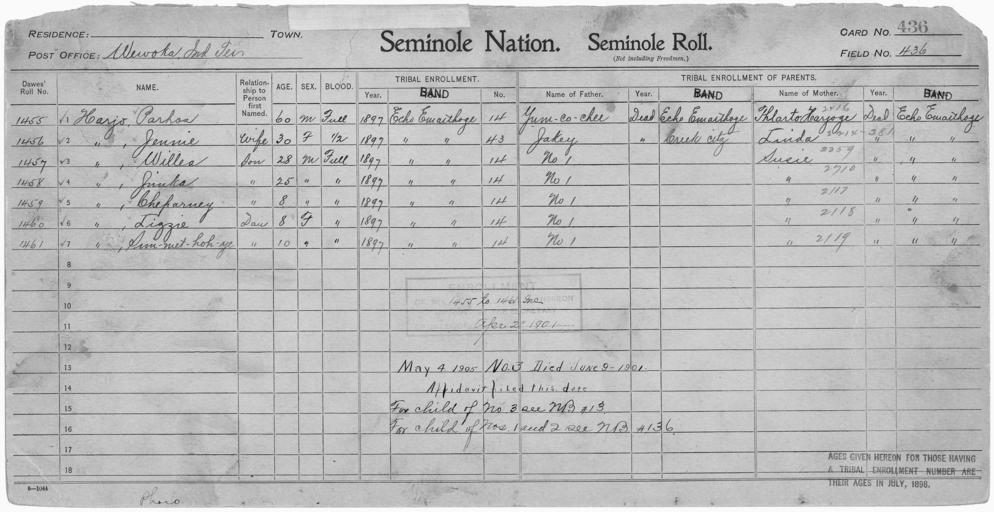 RESIDENCE: TOWN.
POST OFFICE: Wewoka, Ind Ter.
Seminole Nation. Seminole Roll.
(Not including Freedmen.)
CARD NO. 436
FIELD NO. 436
Dawes' Roll No. NAME. Relationship to Person first Named. AGE. SEX. BLOOD. TRIBAL ENROLLMENT. TRIBAL ENROLLMENT OF PARENTS.
Year. BAND No. Name of Father. Year. BAND Name of Mother. Year. BAND
1455 √1 Harjo, Parhos 60 M Full 1897 Echo Emaithoge 14 Yum-co-chee Dead Echo Emaithoge Thlarto Harjoge 2416 Dead Echo Emaithoge
1456 √2 " , Jennie Wife 30 F 1/2 1897 " " 43 Jakey " Creek city Linda " " "
1457 √3 " , Willea Son 28 M Full 1897 " " 14 No 1 Susie 2259 " " "
1458 √4 " , Jimka " 25 " " 1897 " " 14 No 1 " 2710 " " "
1459 √5 " , Cheparney " 8 " " 1897 " " 14 No 1 " 2117 " " "
1460 √6 " , Lizzie Dau 8 F " 1897 " " 14 No 1 " 2118 " " "
1461 √7 " , Sum-met-hoh-ye " 10 " " 1897 " " 14 No 1 " 2119 " " "
8
9
10 1455 to 1461 Inc
11 Apr 2 1901
12
13 May 4 1905 No. 3 Died June 9 - 1901.
14 Affidavit filed this date
15 For child of No 3 see NB #13
16 For child of Nos. 1 and 2 see NB #136
17
18
AGES GIVEN HEREON FOR THOSE HAVING
A TRIBAL ENROLLMENT NUMBER ARE
THEIR AGES IN JULY, 1898.
6—1044